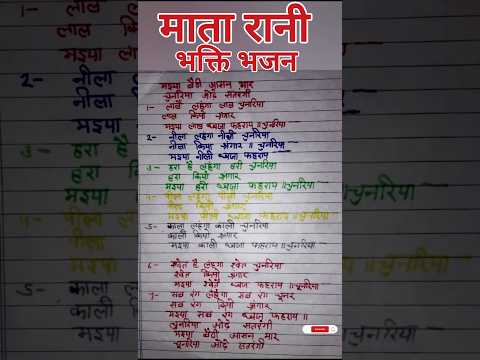 माता रानी
भक्ति भजन
मइया बैठी आसन मार
चुनरिया ओढ़े सतरंगी
1- लाल लहंगा लाल चुनरिया
लाल किया श्रंगार
मइया लाल ध्वजा फहराय ॥ चुनरिया
2- नीला लहंगा नीली चुनरिया
नीला किया श्रंगार ॥
मइया नीली ध्वजा फहराय
3- हरा है लहंगा हरी चुनरिया
हरा किया श्रंगार
मइया हरी ध्वजा फहराय ॥ चुनरिया
4- पीला लहंगा पीली चुनरिया
पीला किया श्रंगार
मइया पीली ध्वजा फहराय ॥ चुनरिया
5- काला लहंगा काली चुनरिया
काली किया श्रंगार
मइया काली ध्वजा फहराय ॥ चुनरिया
6- श्वेत है लहंगा श्वेत चुनरिया
श्वेत किया श्रंगार
मइया श्वेत ध्वजा फहराय ॥ चुनरिया
7- सब रंग लहंगा सब रंग चुनर
सब रंग किया श्रंगार
मइया सब रंग ध्वजा फहराय ॥
चुनरिया ओढ़े सतरंगी
मइया बैठी आसन मार
चुनरिया ओढ़े सतरंगी